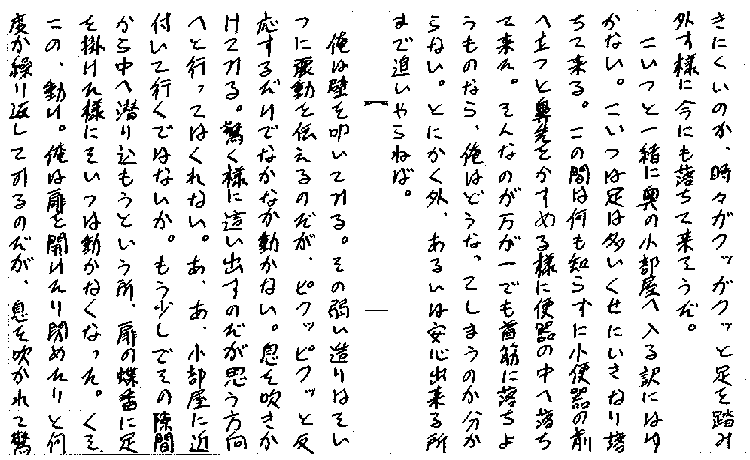 きにくいのか、時々がクッがクッと足を踏み
外す様に今にも落ちて来そうだ。
こいつと一緒に奥の小部屋へ入る訳にはゆ
かない。こいつは足は多いくせにいきなり落
ちて来る。この間は何も知らずに小便器の前
へ立つと鼻先をかすめる様に便器の中へ落ち
て来た。そんなのが万が一でも首筋に落ちよ
うものなら、俺はどうなってしまうのか分か
らない。とにかく外、あるいは安心出来る所
まで追いやらねば。
俺は壁を叩いてみる。その弱い造りはそい
つに震動を伝えるのだが、ピクッピクッと反
応するだけでなかなか動かない。息を吹きか
けてみる。驚く様に這い出すのだが思う方向
へと行ってはくれない。あ、あ、小部屋に近
付いて行くではないか。もう少しでその隙間
から中へ潜り込もうという所、扉の蝶番に足
を掛けた様にそいつは動かなくなった。くそ
この、動け。俺は扉を開けたり閉めたりと何
度か繰り返してみるのだが、息を吹かれて驚